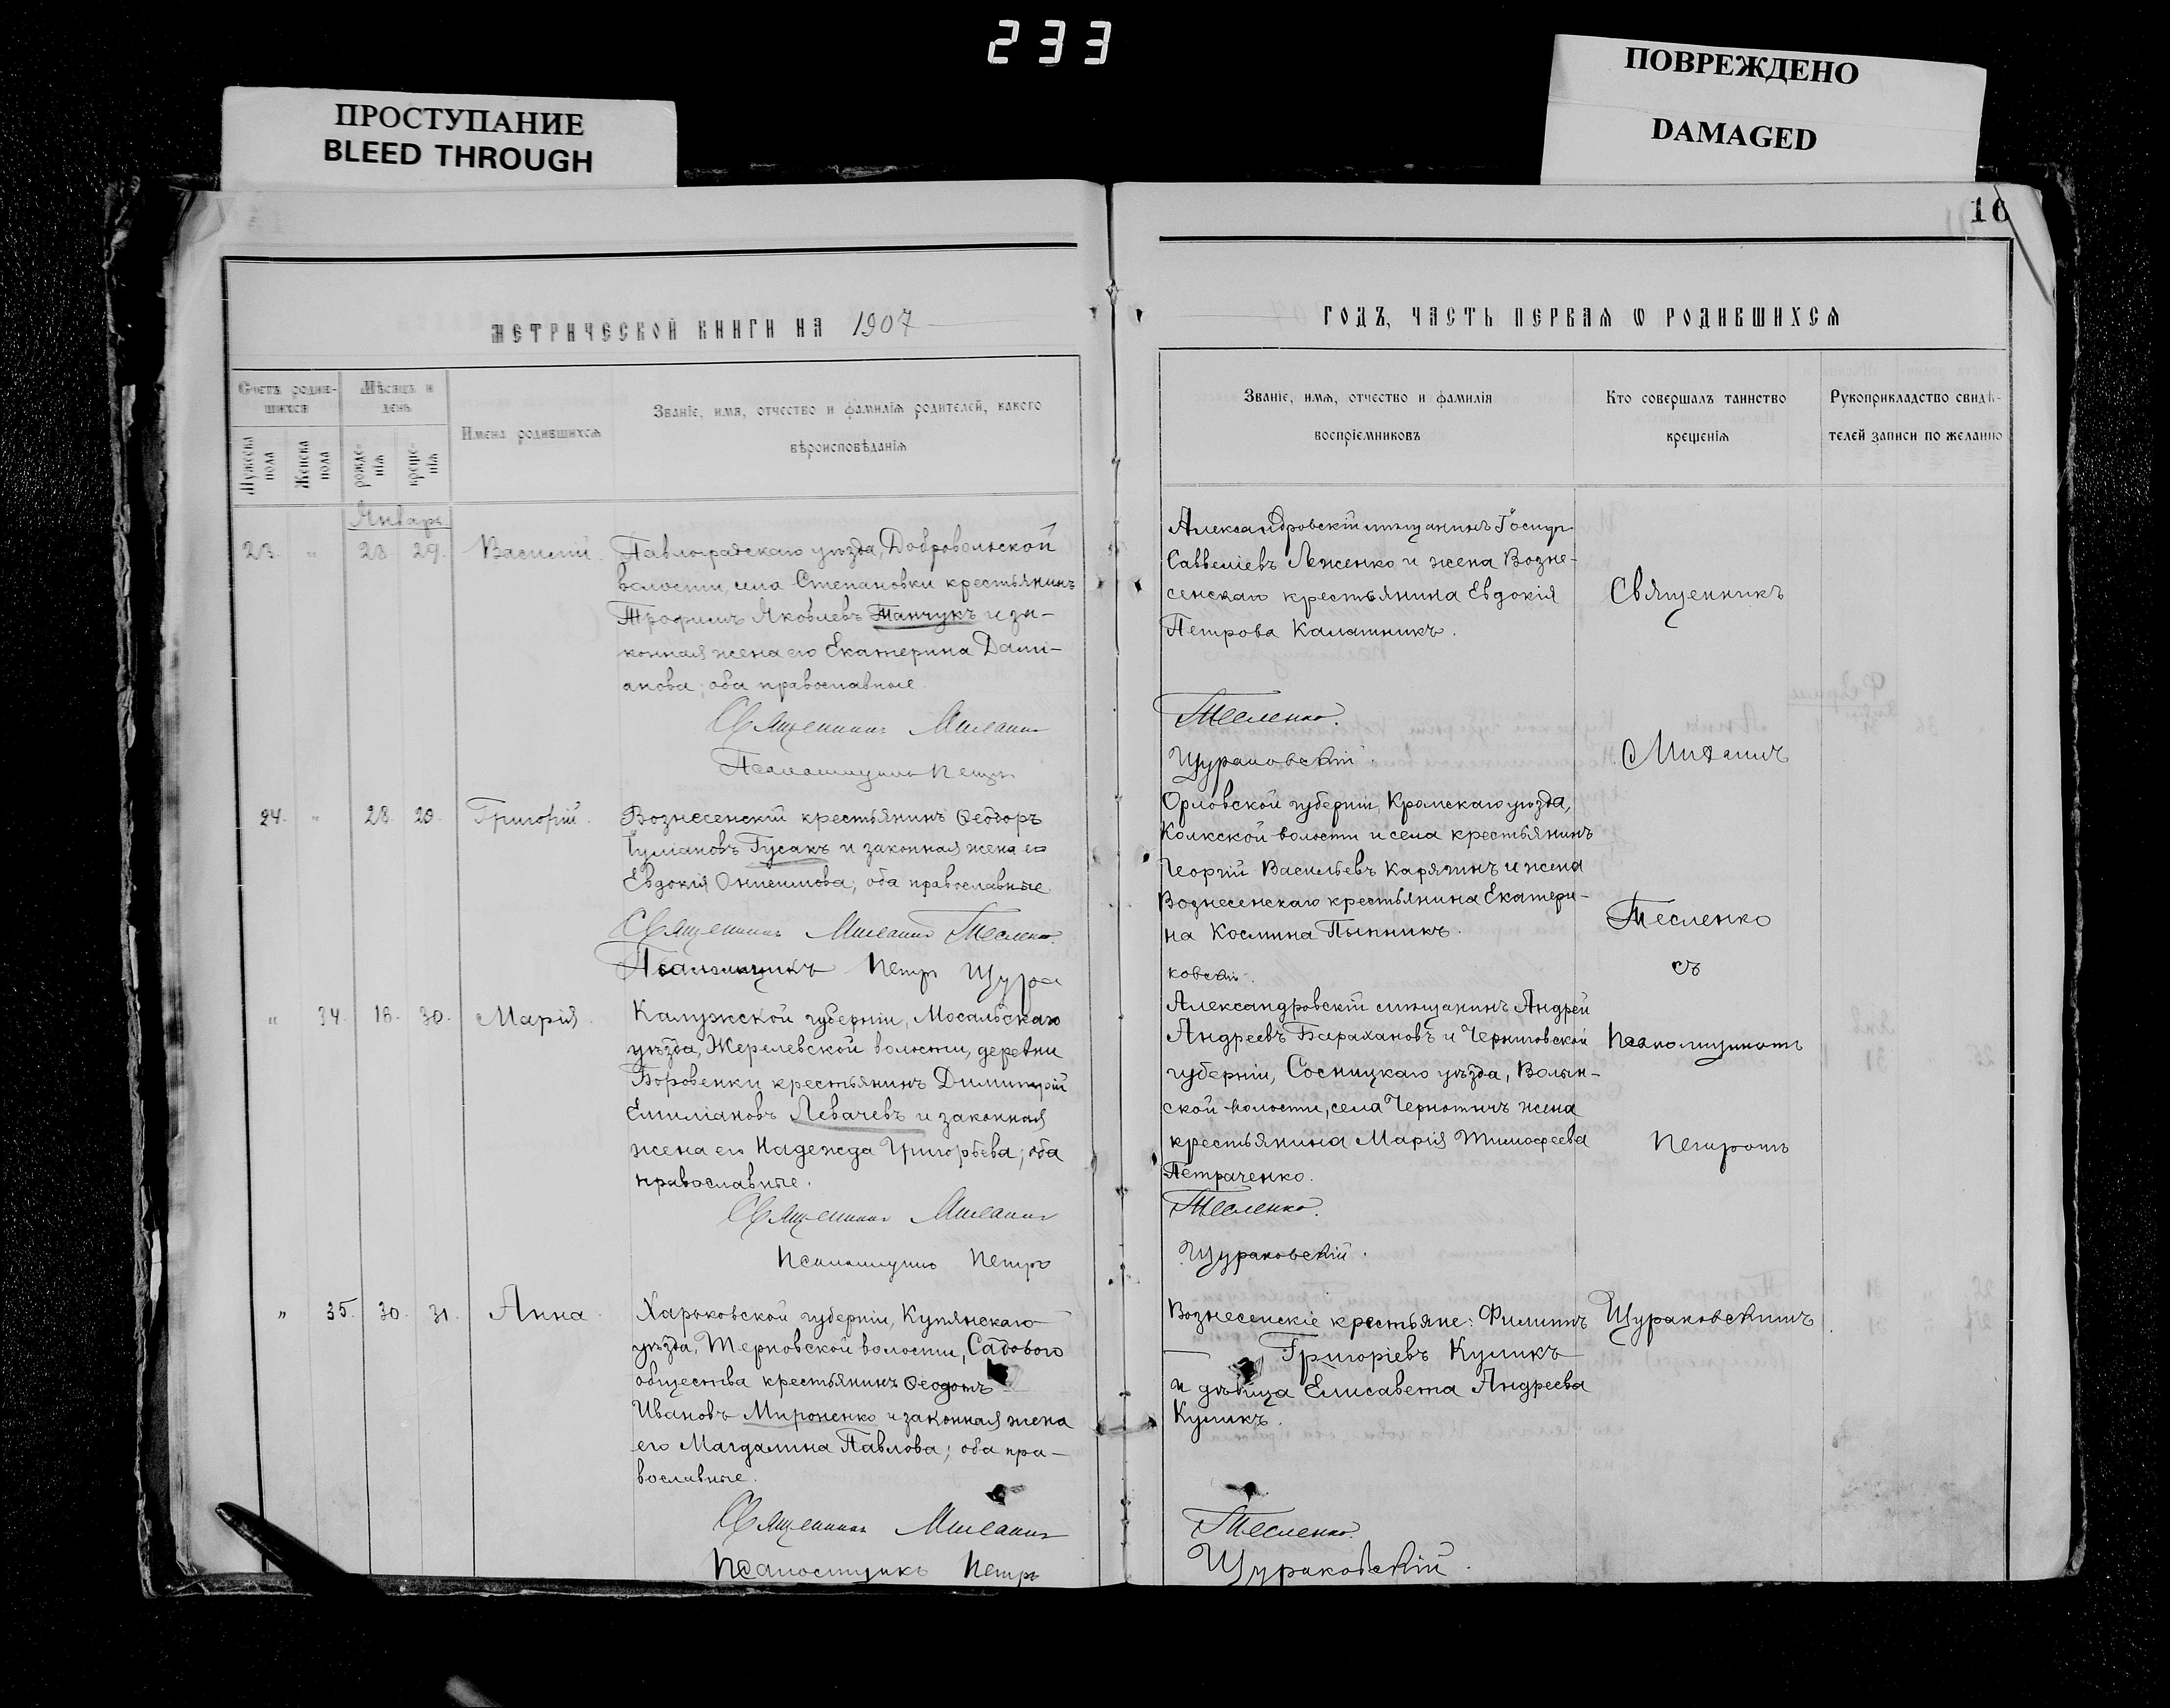 233
ПРОСТУПАНИЕ
BLEED THROUGH
ПОВРЕЖДЕНО
DAMAGED
16
МЕТРИЧЕСКОЙ КНИГИ НА 1907
Счетъ родив-
шихся
Мѣсяцъ и
день
Имена родившихся
Званіе, имя, отчество и фамилія родителей, какого
вѣроисповѣданія
Мужеска пола
Женска пола
рожде-
нія
креще-
нія
Январь
23. " 28. 29. Василій.
Павлоградскаго уѣзда, Добровольской
волости, села Степановки крестьянинъ
Трофимъ Яковлевъ Танчукъ и за-
конная жена его Екатерина Дамі-
анова; оба православные.
Священникъ Михаилъ
Псаломщикъ Петръ
24. " 28. 29. Григорій.
Вознесенскій крестьянинъ Ѳеодоръ
Іуліановъ Гусакъ и законная жена его
Евдокія Онисимова; оба православные.
Священникъ Михаилъ Тесленко.
Псаломщикъ Петръ Щура
" 34. 18. 30. Марія.
Калужской губерніи, Мосальскаго
уѣзда, Жерелевской волости, деревни
Боровенки крестьянинъ Димитрій
Емиліановъ Левачевъ и законная
жена его Надежда Григорьева; оба
православные.
Священникъ Михаилъ
Псаломщикъ Петръ
" 35. 30. 31. Анна.
Харьковской губерніи, Купянскаго
уѣзда, Терновской волости, Садового
общества крестьянинъ Ѳеодотъ
Ивановъ Мироненко и законная жена
его Магдалина Павлова; оба пра-
вославные.
Священникъ Михаилъ
Псаломщикъ Петръ
ГОДЪ, ЧАСТЬ ПЕРВАЯ Ѡ РОДИВШИХСЯ
Званіе, имя, отчество и фамилія
воспріемниковъ
Кто совершалъ таинство
крещенія
Рукоприкладство свидѣ-
телей записи по желанію
Александровскій мѣщанинъ
Савеліевъ Леженко и жена Возне-
сенскаго крестьянина Евдокія
Петрова Калашникъ.
Тесленко.
Щураковскій.
Орловской губерніи, Кромскаго уѣзда,
Колкской волости и села крестьянинъ
Георгій Васильевъ Карягинъ и жена
Вознесенскаго крестьянина Екатери-
на Космина Пынникъ.
ковскій.
Александровскій мѣщанинъ Андрей
Андреевъ Барахановъ и Черниговской
губерніи, Сосницкаго уѣзда, Волын-
ской волости, села Чернотичъ жена
крестьянина Марія Тимофеева
Петраченко.
Тесленко.
Щураковскій.
Вознесенскіе крестьяне: Филиппъ
Григоріевъ Куликъ
и дѣвица Елисавета Андреева
Куликъ.
Тесленко.
Щураковскій.
Священникъ
Михаилъ
Тесленко
съ
Псаломщикомъ
Петромъ
Щураковскимъ